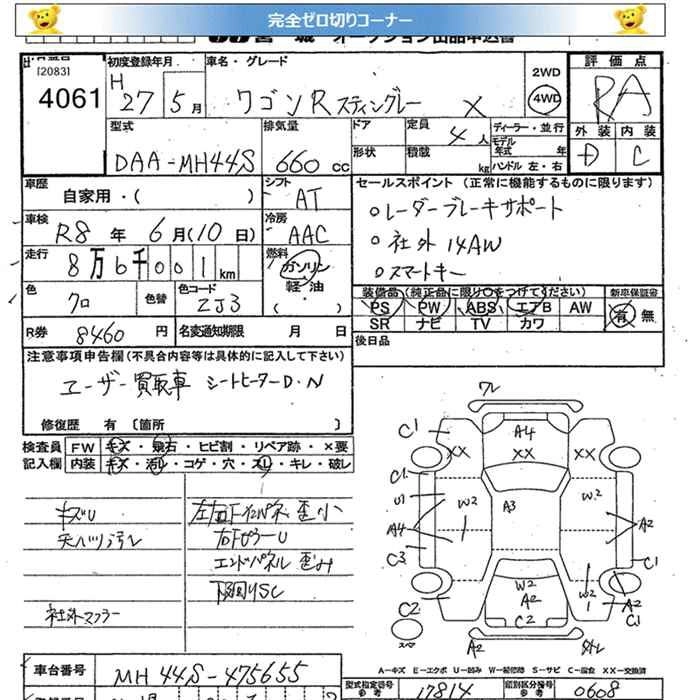 完全ゼロ切りコーナー
宮城 オークション出品申込書
[2083]
4061
初度登録年月 車名・グレード 評価点
H 27年 5月 ワゴンR スティングレー X 2WD 4WD RA
型式 排気量 ドア 定員 ディーラー・並行 外装 内装
DAA-MH44S 660cc 4人 モデル年式 年 D C
形状 積載 kg ハンドル 左・右
車歴 シフト セールスポイント (正常に機能するものに限ります)
自家用・( ) AT
○レーダーブレーキサポート
車検 冷房
R8年 6月(10日) AAC
○社外14AW
走行 燃料
8万6千001km ガソリン 軽油 ( )
○スマートキー
色 色替 色コード
クロ ZJ3
装備品(純正品に限り○をつけてください) 新車保証書
PS PW ABS エアB AW 有 無
SR ナビ TV カワ
R券 8460円 名変通知期限 月 日
後日品
注意事項申告欄(不具合内容等は具体的に記入して下さい)
ユーザー買取車 シートヒーターD・N
修復歴 有 〔箇所 〕
検査員 FW キズ・飛石・ヒビ割・リペア跡・×要
記入欄 内装 キズ・汚レ・コゲ・穴・スレ・キレ・破レ
キズU
天ハツリ汚レ
社外マフラー
エンドパネル歪み
下回りSC
ワレ
C1 A4
XX XX XX
C1
U1 W2 A3 W2
A4 A2
C3 C1
W2 W2
A2 A2
C2 C2 C1
スペア A2
A-キズ E-エクボ U-凹み W-補修跡 S-サビ C-腐食 XX-交換済
車台番号 MH44S-475655
型式指定番号 参考 17814 類別区分番号 参考 0608